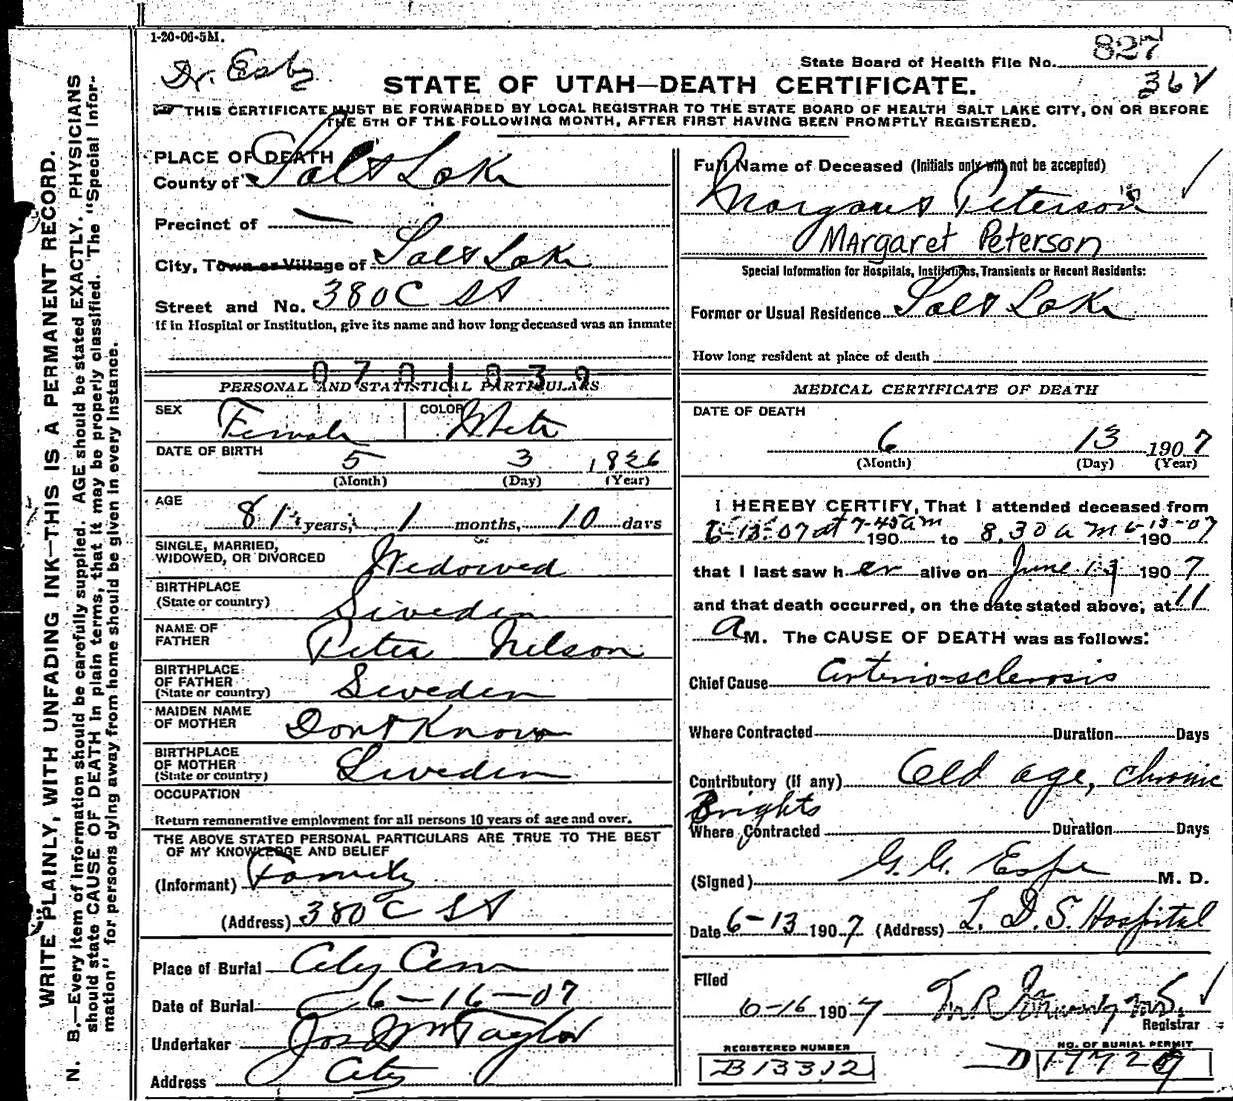 1-20-06-5M.
Dr. Esby
State Board of Health File No. 827
STATE OF UTAH—DEATH CERTIFICATE.
36 V
THIS CERTIFICATE MUST BE FORWARDED BY LOCAL REGISTRAR TO THE STATE BOARD OF HEALTH SALT LAKE CITY, ON OR BEFORE
THE 5TH OF THE FOLLOWING MONTH, AFTER FIRST HAVING BEEN PROMPTLY REGISTERED.
PLACE OF DEATH
County of Salt Lake
Precinct of —
City, Town or Village of Salt Lake
Street and No. 380 C St
If in Hospital or Institution, give its name and how long deceased was an inmate
0701039
PERSONAL AND STATISTICAL PARTICULARS
SEX Female COLOR White
DATE OF BIRTH
5 3 1826
(Month) (Day) (Year)
AGE
81 years, 1 months, 10 days
SINGLE, MARRIED,
WIDOWED, OR DIVORCED Widowed
BIRTHPLACE
(State or country) Sweden
NAME OF
FATHER Peter Nelson
BIRTHPLACE
OF FATHER
(State or country) Sweden
MAIDEN NAME
OF MOTHER Dont Know
BIRTHPLACE
OF MOTHER
(State or country) Sweden
OCCUPATION
Return remunerative employment for all persons 10 years of age and over.
THE ABOVE STATED PERSONAL PARTICULARS ARE TRUE TO THE BEST
OF MY KNOWLEDGE AND BELIEF
(Informant) Family
(Address) 380 C St
Place of Burial City Cem
Date of Burial 6-16-07
Undertaker Jos Wm Taylor
Address City
Full Name of Deceased (Initials only will not be accepted)
Margaret Peterson
Margaret Peterson
Special Information for Hospitals, Institutions, Transients or Recent Residents:
Former or Usual Residence Salt Lake
How long resident at place of death
MEDICAL CERTIFICATE OF DEATH
DATE OF DEATH
6 13 1907
(Month) (Day) (Year)
I HEREBY CERTIFY, That I attended deceased from
6-13-07 at 7-45 am 190 to 8.30 a m 6-13-07 190
that I last saw her alive on June 13 1907
and that death occurred, on the date stated above, at 11
A M. The CAUSE OF DEATH was as follows:
Chief Cause Arterio-sclerosis
Where Contracted Duration Days
Contributory (if any) Old age, chronic
Brights
Where Contracted Duration Days
(Signed) G. G. Espe M. D.
Date 6-13 1907 (Address) L. D. S. Hospital
Filed
6-16 1907
Registrar
REGISTERED NUMBER
B13312
NO. OF BURIAL PERMIT
D 17729
WRITE PLAINLY, WITH UNFADING INK—THIS IS A PERMANENT RECORD.
N. B.—Every item of information should be carefully supplied. AGE should be stated EXACTLY. PHYSICIANS
should state CAUSE OF DEATH in plain terms, that it may be properly classified. The "Special Infor-
mation" for persons dying away from home should be given in every instance.